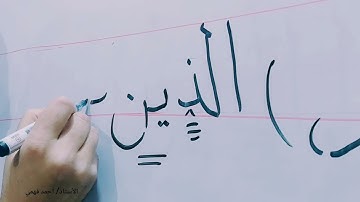 ) الذين
الأستاذ/ أحمد فهمي